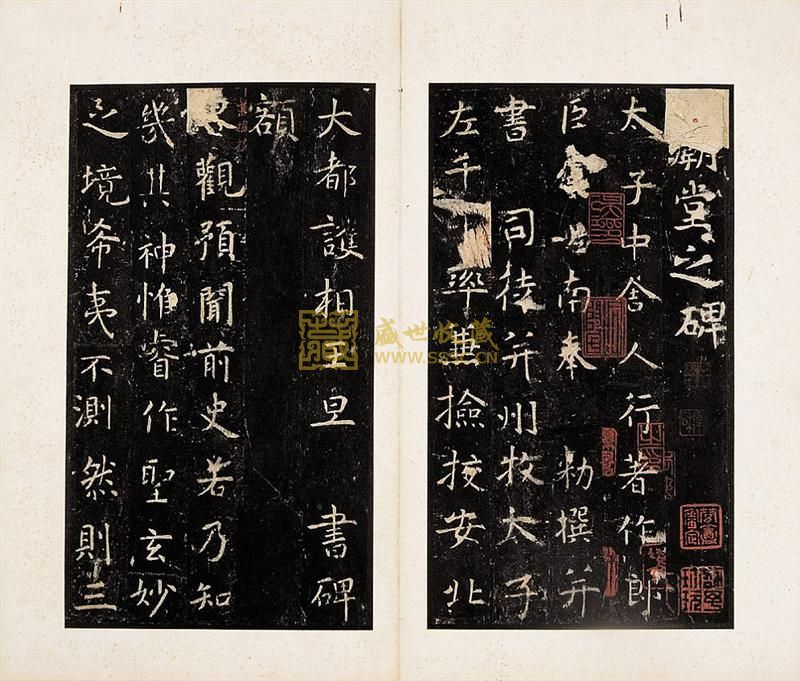 廟堂之碑
太子中舍人行著作郎
臣虞世南奉 勑撰并
書 司徒并州牧太子
左千牛率兼撿挍安北
大都護相王旦 書碑
額
微臣觀預聞前史若乃知
幾其神惟睿作聖玄妙
之境希夷不測然則三
盛世收藏